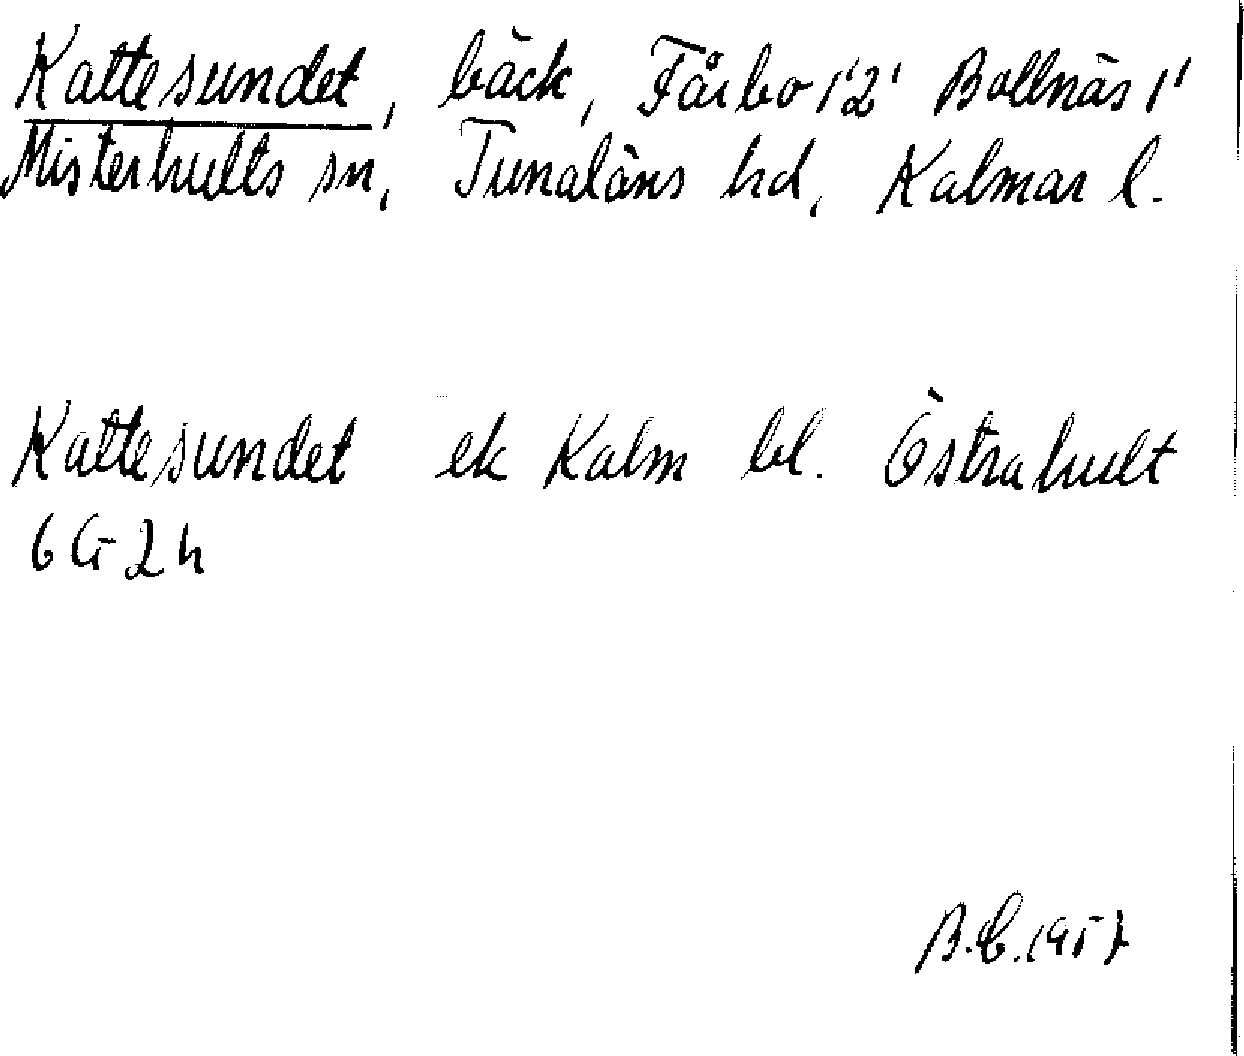 Kattesundet, bäck, Fårbo 1'2' Bollnäs 1'
Misterhults sn, Tunaläns hd, Kalmar l.
Kattesundet ek Kalm bl. Östrahult
6G2h
B.E.1957